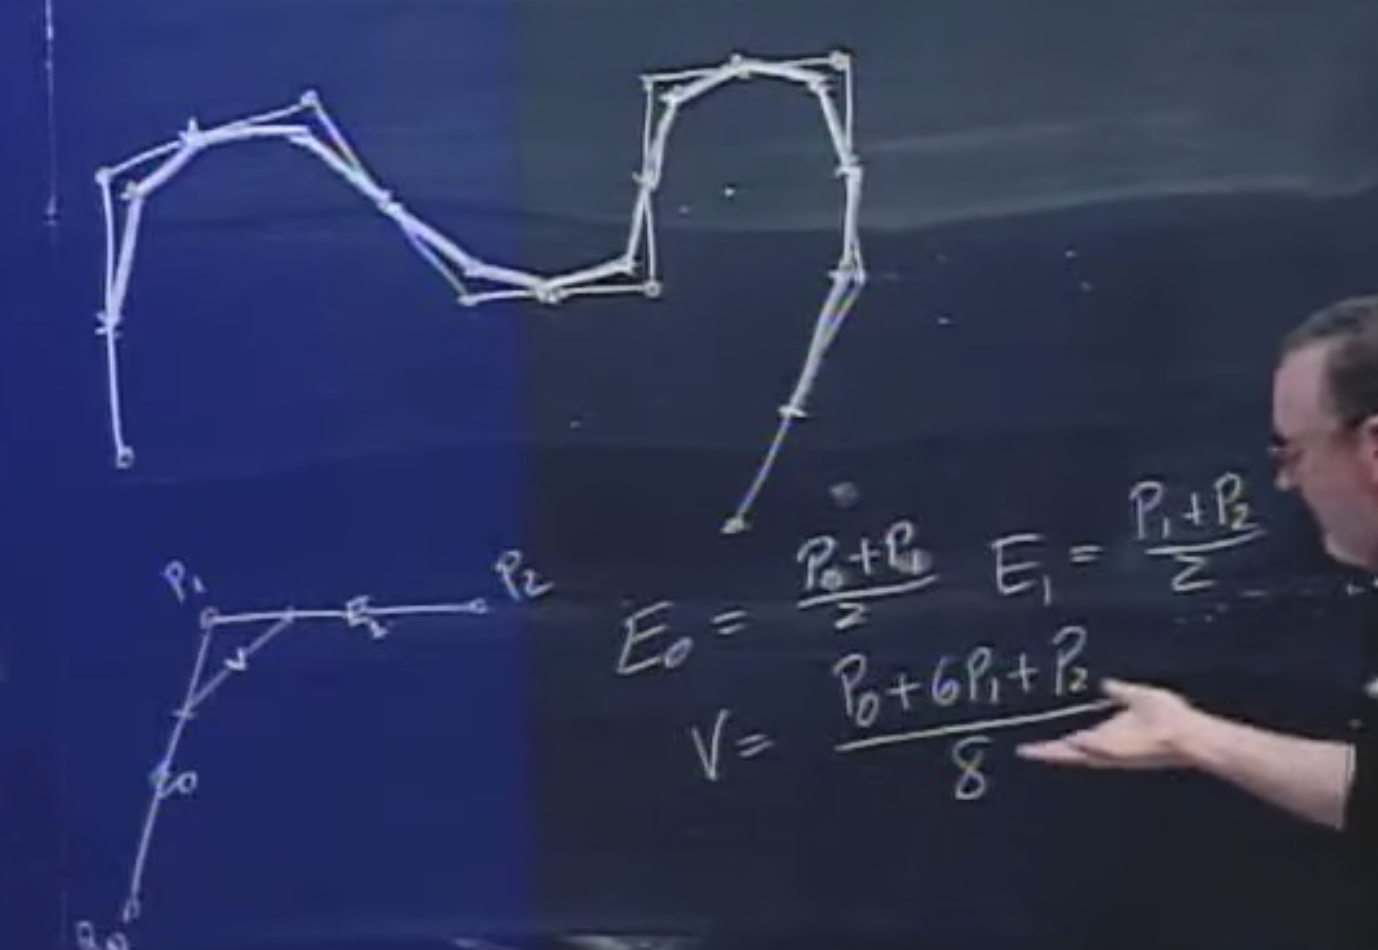 P₁ P₂
E₁
V
E₀
P₀
E₀ = (P₀ + P₁)/2 E₁ = (P₁ + P₂)/2
V = (P₀ + 6P₁ + P₂)/8